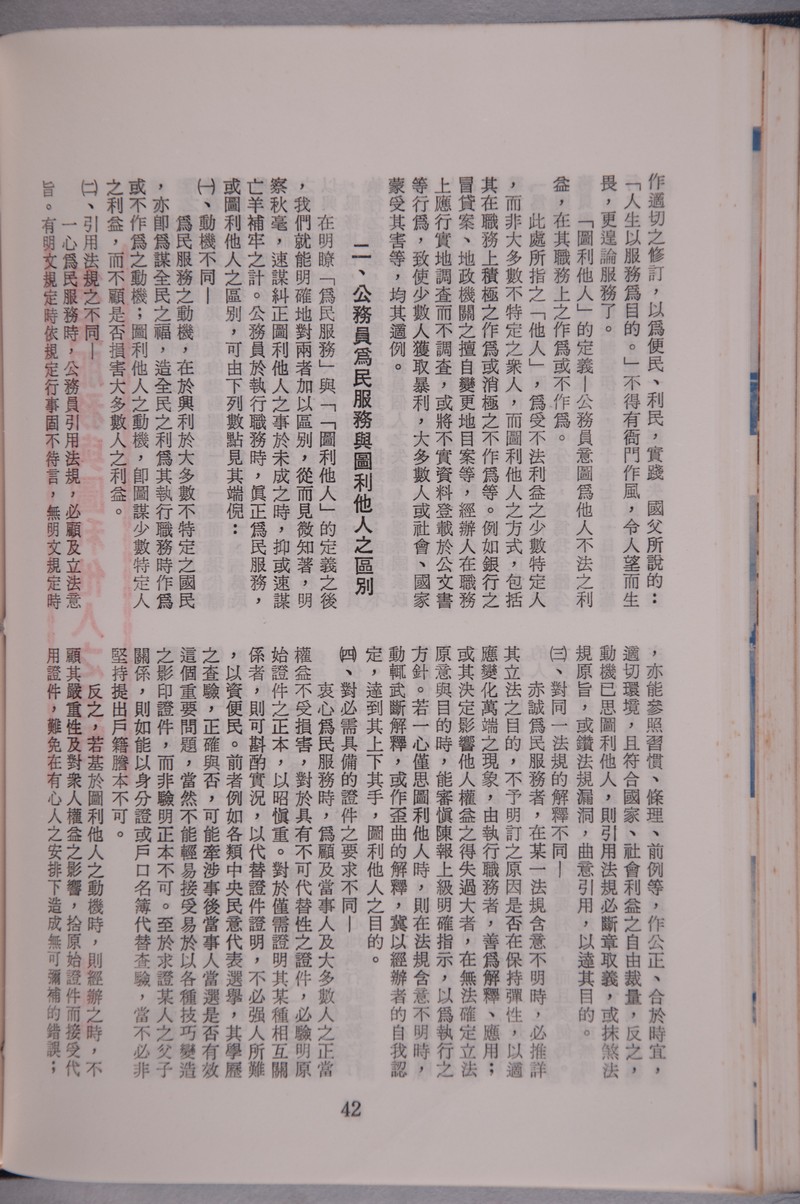 作適切之修訂，以爲便民、利民，實踐　國父所說的：
「人生以服務爲目的。」不得有衙門作風，令人望而生
畏，更遑論服務了。
「圖利他人」的定義—公務員意圖爲他人不法之利
益，在其職務上之作爲或不作爲。
此處所指之「他人」，爲受不法利益之少數特定人
，而非大多數不特定之衆人，而圖利他人之方式，包括
其在職務上積極之作爲或消極之不作爲等。例如銀行之
冒貸案、地政機關之擅自變更地目案等，經辦人在職務
上應行實地調查而不調查，或將不實資料登載於公文書
等行爲，致使少數人獲取暴利，大多數人或社會、國家
蒙受其害等，均其適例。
二、公務員爲民服務與圖利他人之區別
在明瞭「爲民服務」與「「圖利他人」的定義之後
，我們就能明確地對兩者加以區別，從而見微知著，明
察秋毫，速謀糾正圖利他人之事於未成之時，抑或速謀
亡羊補牢之計。公務員於執行職務時，眞正爲民服務，
或圖利他人之區別，可由下列數點見其端倪：
㈠、動機不同—
爲民服務之動機，在於興利於大多數不特定之國民
，亦卽爲謀全民之福，造全民之利爲其執行職務時作爲
或不作爲之動機；圖利他人之動機，卽圖謀少數特定人
之利益，而不顧是否損害大多數人之利益。
㈡、引用法規之不同—
一心爲民服務時，公務員引用法規，必顧及立法意
旨。有明文規定時依規定行事固不待言，無明文規定時
，亦能參照習慣、條理、前例等，作公正、合於時宜，
適切環境，且符合國家、社會利益之自由裁量，反之，
動機已思圖利他人，則引用法規必斷章取義，或抹煞法
規原旨，或鑽法規漏洞，曲意引用，以達其目的。
㈢、對同一法規的解釋不同—
赤誠爲民服務者，在某一法規含意不明時，必推詳
其立法之目的，不予明訂之原因是否在保持彈性，以適
應變化萬端之現象，由執行職務者，善爲解釋、應用；
或其決定影響他人權益之得失過大者，在無法確定立法
原意與目的時，能審愼陳報上級明確指示，以爲執行之
方針。若一心僅思圖利他人時，則在法規含意不明時，
動輒武斷解釋，或作歪曲的解釋，冀以經辦者的自我認
定，達到其上下其手，圖利他人之目的。
㈣、對必需具備的證件之要求不同—
衷心爲民服務時，爲顧及當事人及大多數人之正當
權益不受損害，對於具有不可代替性之證件，必驗明原
始證件之正本，以昭愼重。對於僅需證明其某種相互關
係者，則可斟酌實況，以代替證件證明，不必强人所難
，以資便民。前者例如各類中央民意代表選舉，其學歷
之查驗，正確與否，可能牽涉事後當事人當選是否有效
這個重要問題，當然不能輕易接受易於以各種技巧變造
之影印證件，而非驗明正本不可。至於求證某人之父子
關係，則如能以身分證或戶口名簿代替查驗，當不必非
堅持提出戶籍謄本不可。
反之，若基於圖利他人之動機時，則經辦之時，不
顧其嚴重性及對衆人權益之影響，捨原始證件而接受代
用證件，難免在有心人之安排下造成無可彌補的錯誤；
42